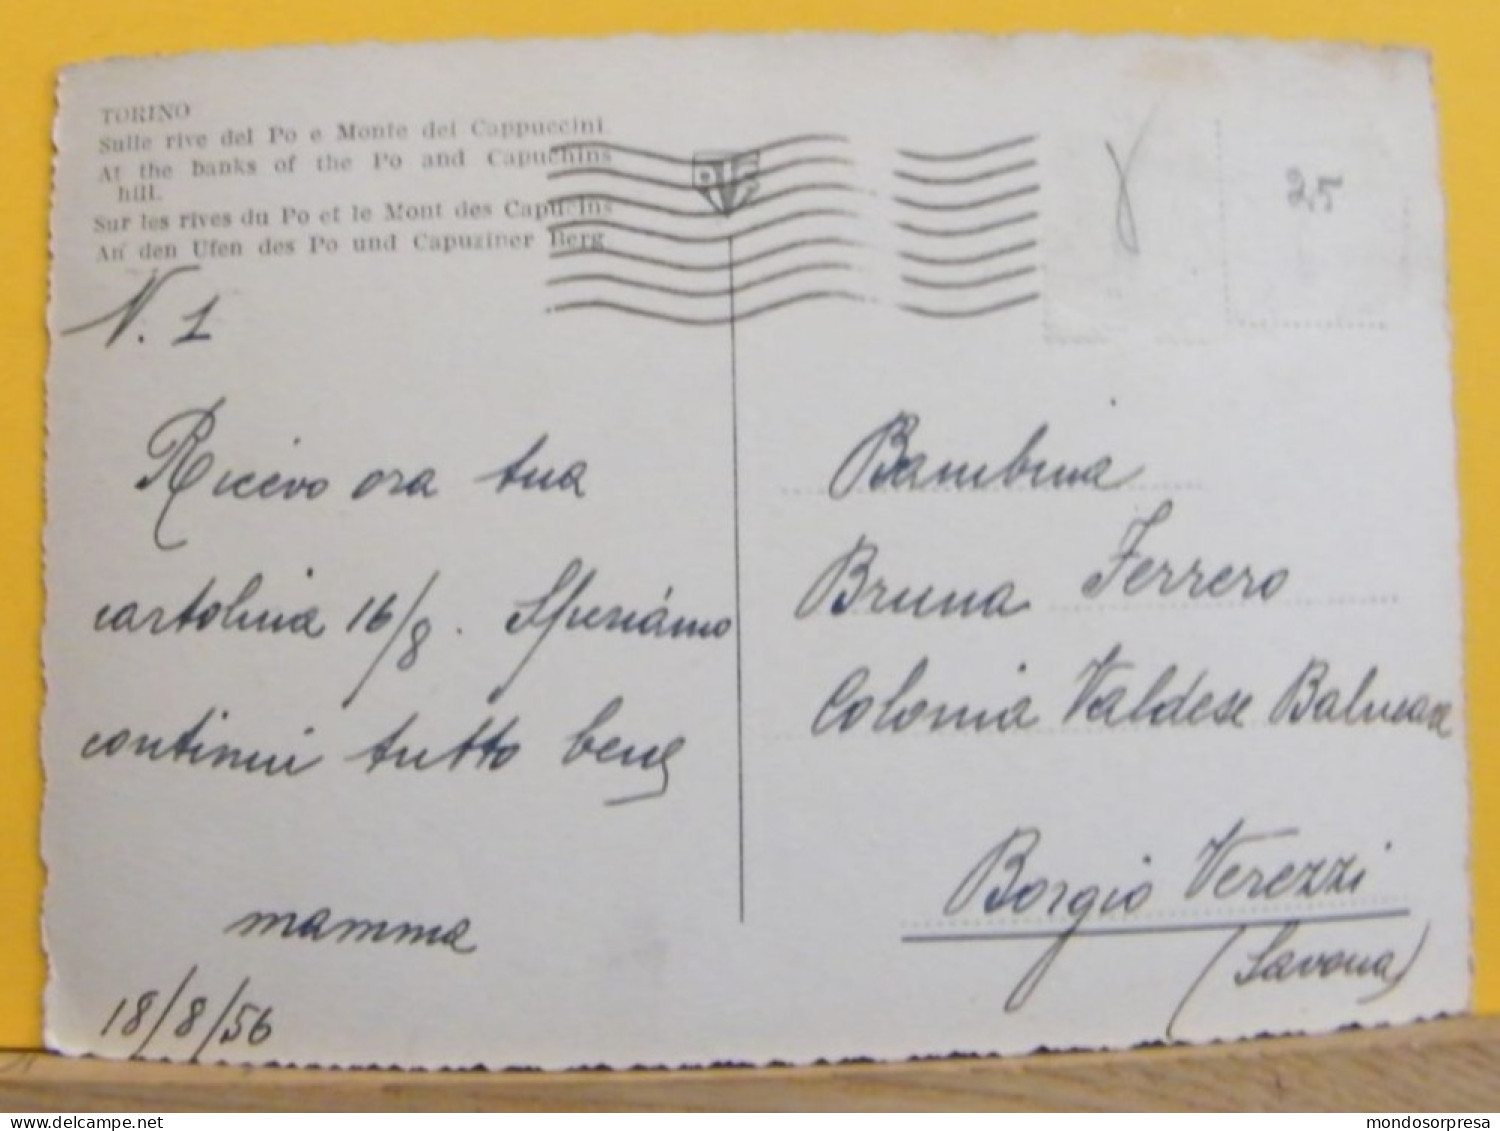 TORINO
Sulle rive del Po e Monte dei Cappuccini
At the banks of the Po and Capuchins
hill.
Sur les rives du Po et le Mont des Capucins
An den Ufen des Po und Capuziner Berg
N. 1
Ricevo ora tua
cartolina 16/8. Speriamo
continui tutto bene
mamma
18/8/56
25
Bambina
Bruna Ferrero
Colonia Valdese Balneare
Borgio Verezzi
(Savona)
delcampe.net
mondosorpresa